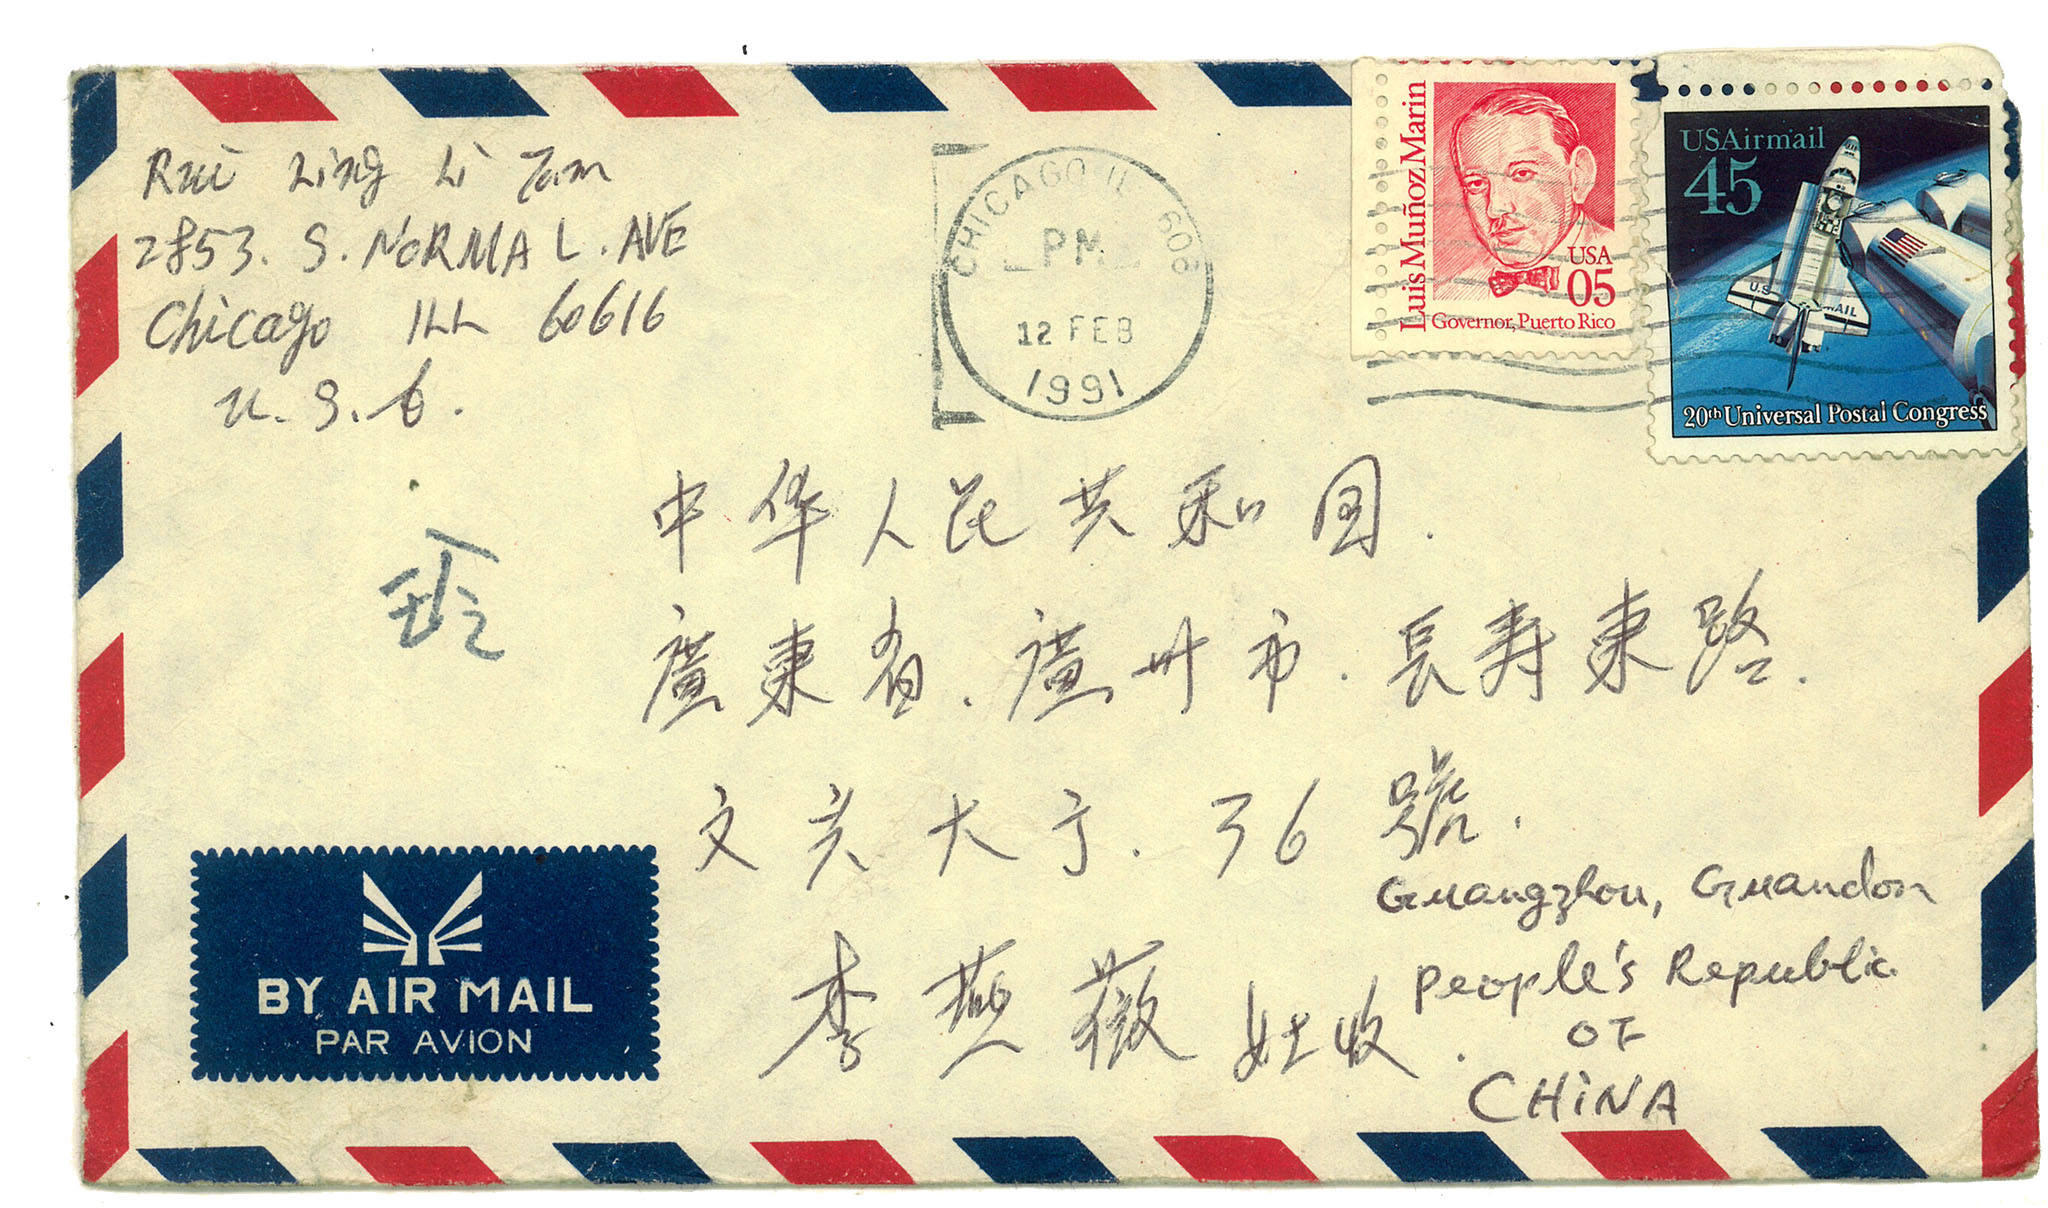 Rui Ling Li Tam
2853. S. NORMAL. AVE
Chicago ILL 60616
U. S. A.
CHICAGO IL 606
PM
12 FEB
1991
Luis Muñoz Marin
USA
05
Governor, Puerto Rico
USAirmail
45
20th Universal Postal Congress
中华人民共和国.
廣東省.廣州市.長寿東路.
文 大 . 36 號.
李燕薇 收.
Guangzhou, Guandon
People's Republic
OF
CHINA
玲
BY AIR MAIL
PAR AVION